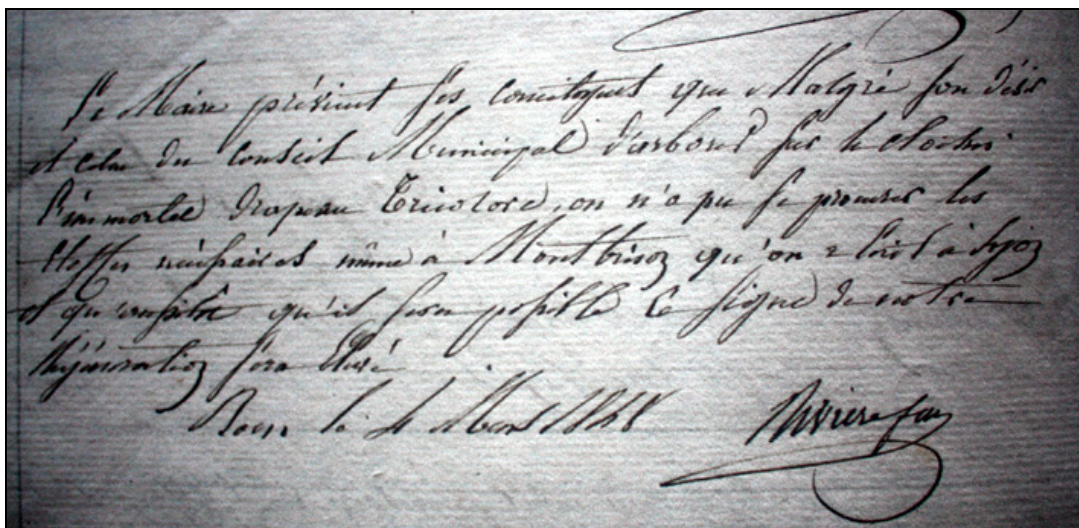 Le Maire prévient ses concitoyens que Malgré son désir
et celui du Conseil Municipal d'arborer sur le clocher
l'immortel drapeau Tricolore, on n'a pu se procurer les
étoffes nécessaires même à Montbrison qu'on écrit à Lyon
et qu'aussitôt qu'il sera possible ce signe de notre
Régénération sera Elevé
Boen le 4 Mars 1848